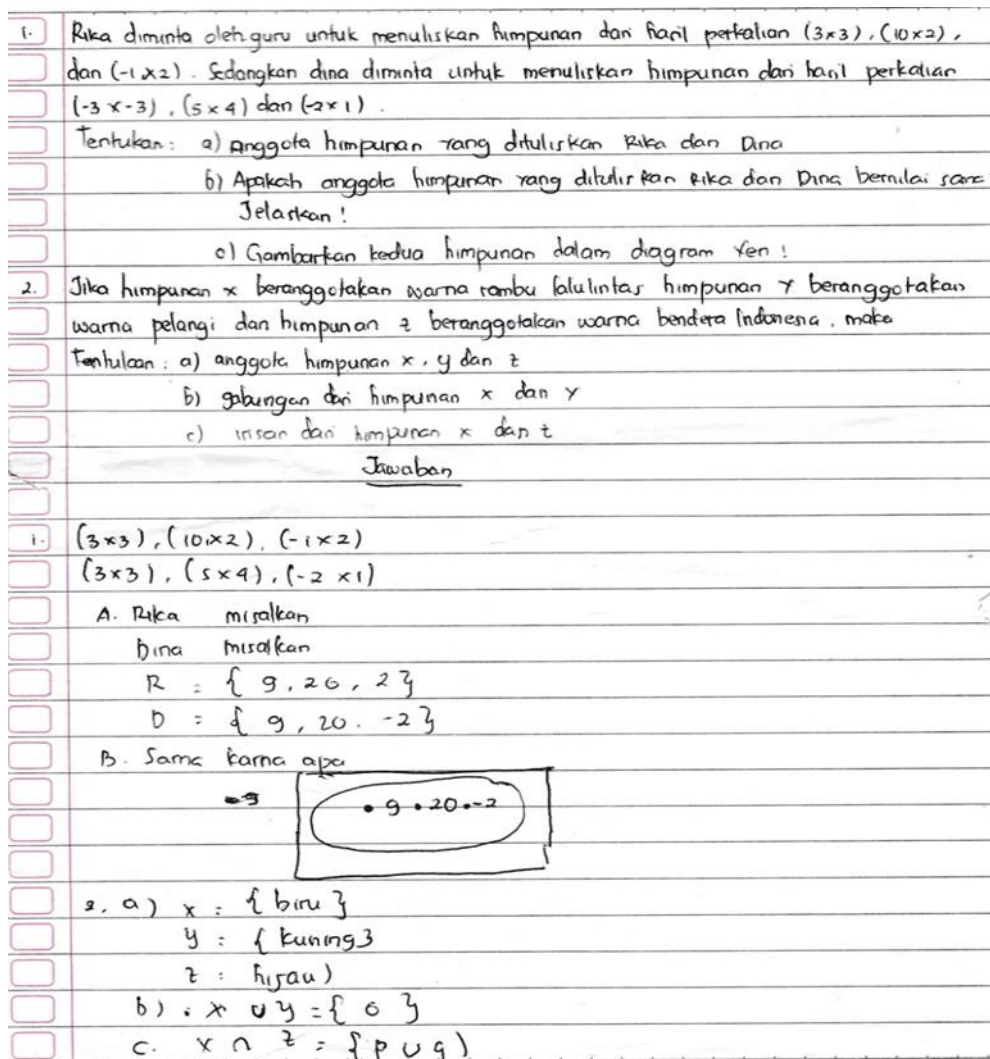 1. Rika diminta oleh guru untuk menuliskan himpunan dari hasil perkalian (3×3), (10×2),
dan (-1×2). Sedangkan dina diminta untuk menuliskan himpunan dari hasil perkalian
(-3 × -3), (5×4) dan (-2×1).
Tentukan: a) Anggota himpunan yang dituliskan Rika dan Dina
b) Apakah anggota himpunan yang dituliskan Rika dan Dina bernilai sama
Jelaskan!
c) Gambarkan kedua himpunan dalam diagram Ven!
2. Jika himpunan x beranggotakan warna rambu lalulintas himpunan Y beranggotakan
warna pelangi dan himpunan z beranggotakan warna bendera Indonesia, maka
Tentukan: a) anggota himpunan x, y dan z
b) gabungan dari himpunan x dan Y
c) irisan dari himpunan x dan z
Jawaban
1. (3×3), (10×2), (-1×2)
(3×3), (5×4), (-2×1)
A. Rika misalkan
Dina misalkan
R = { 9, 20, 2}
D = { 9, 20. -2}
B. Sama karna apa
• 9 • 20 • -2
2. a) x = {biru}
y : { kuning}
z : hijau)
b) . x ∪ y = { 0 }
c. x ∩ z = {p ∪ q)